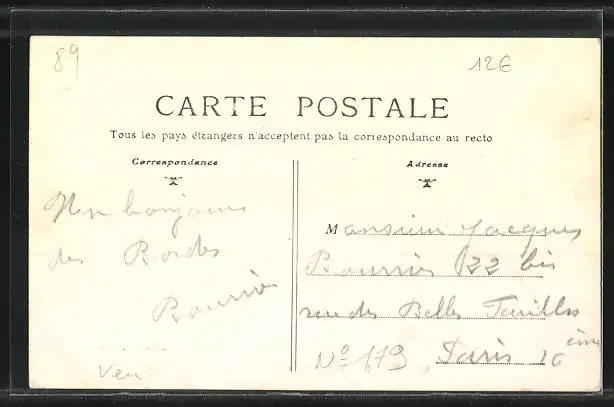 89
12€
CARTE POSTALE
Tous les pays étrangers n'acceptent pas la correspondance au recto
Correspondance
Adresse
Un bonjour
des Bordes
Monsieur Jacques
22 bis
rue des Belles Feuilles
N° 179 Paris 16 ème